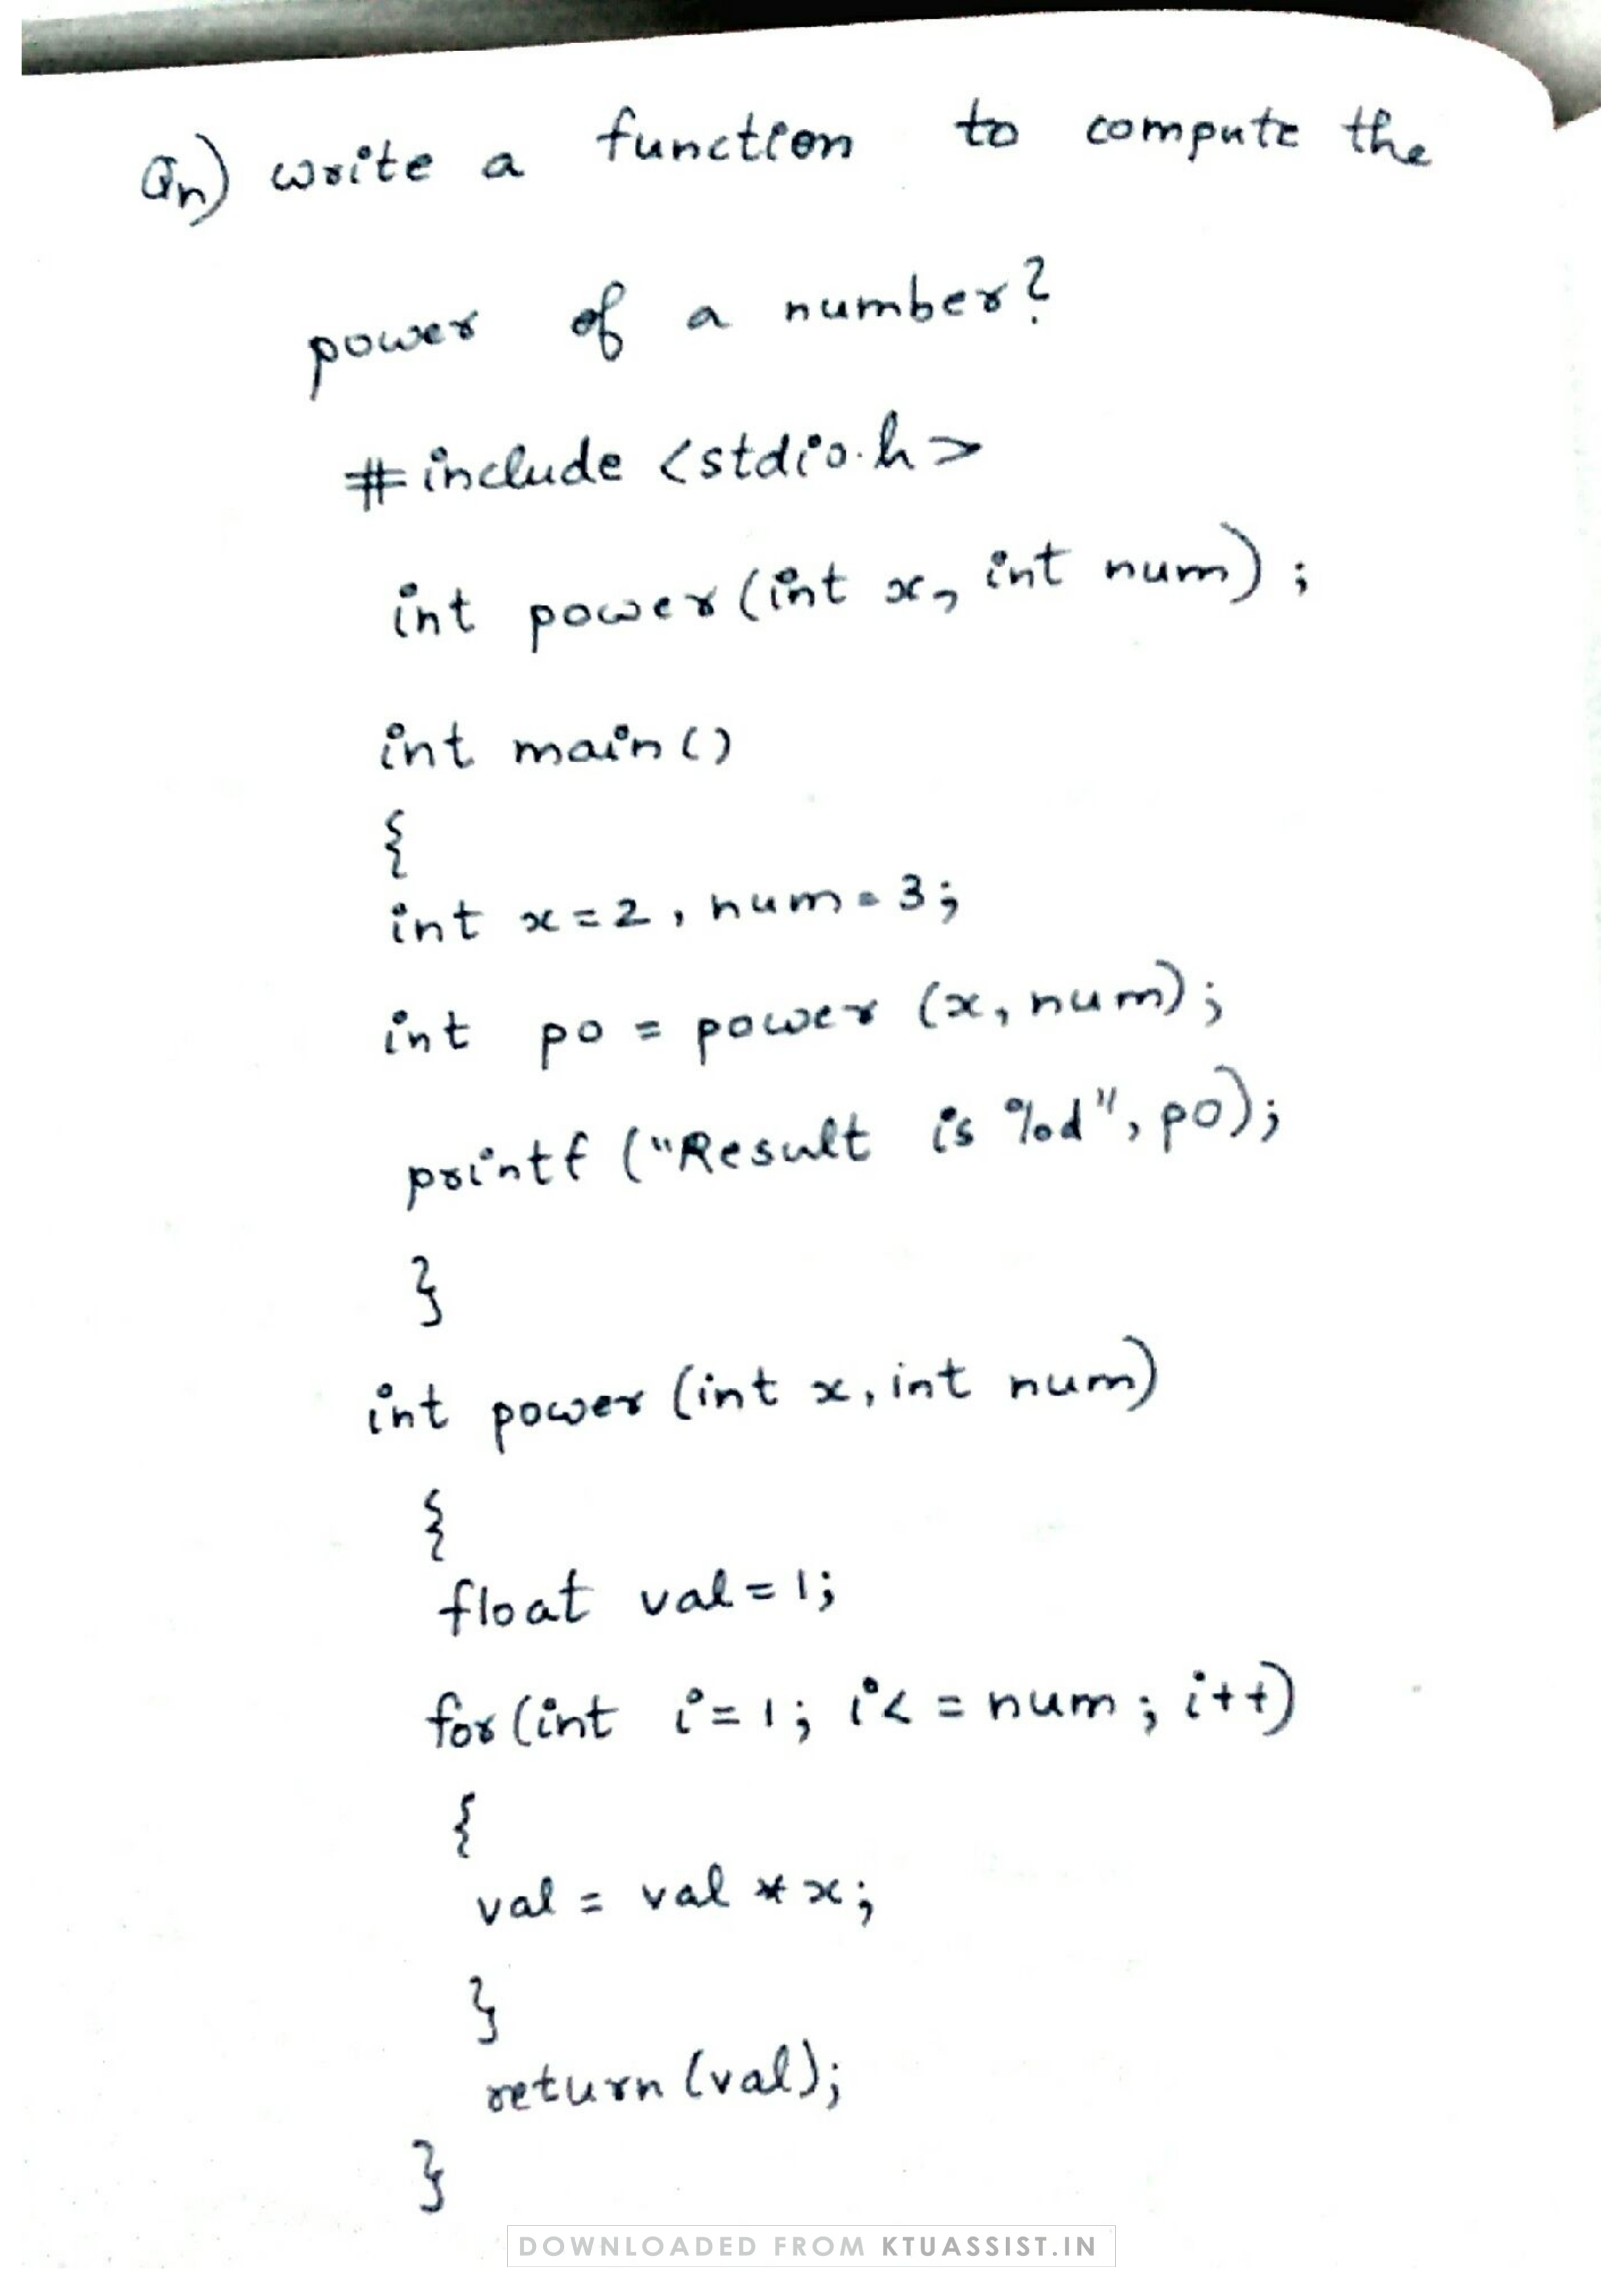 Qn) write a function to compute the
power of a number?
#include <stdio.h>
int power(int x, int num);
int main()
{
int x=2, num=3;
int po = power (x, num);
printf ("Result is %d", po);
}
int power (int x, int num)
{
float val=1;
for(int i=1; i<=num; i++)
{
val = val * x;
}
return (val);
}
DOWNLOADED FROM KTUASSIST.IN